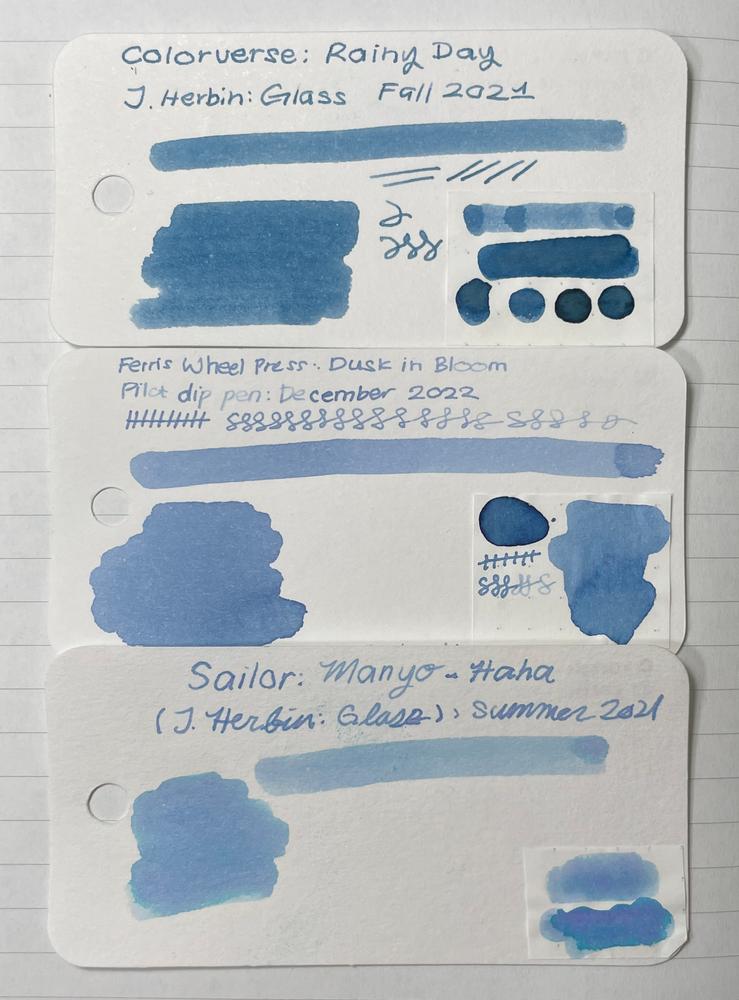 Colorverse: Rainy Day
J. Herbin: Glass Fall 2021
Ferris Wheel Press: Dusk in Bloom
Pilot dip pen: December 2022
Sailor: Manyo - Haha
(J. Herbin: Glass): Summer 2021